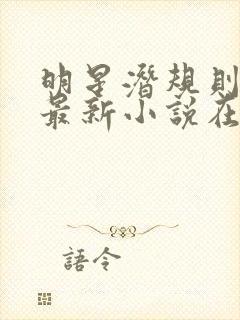 明星潛規則
最新小說在
語令